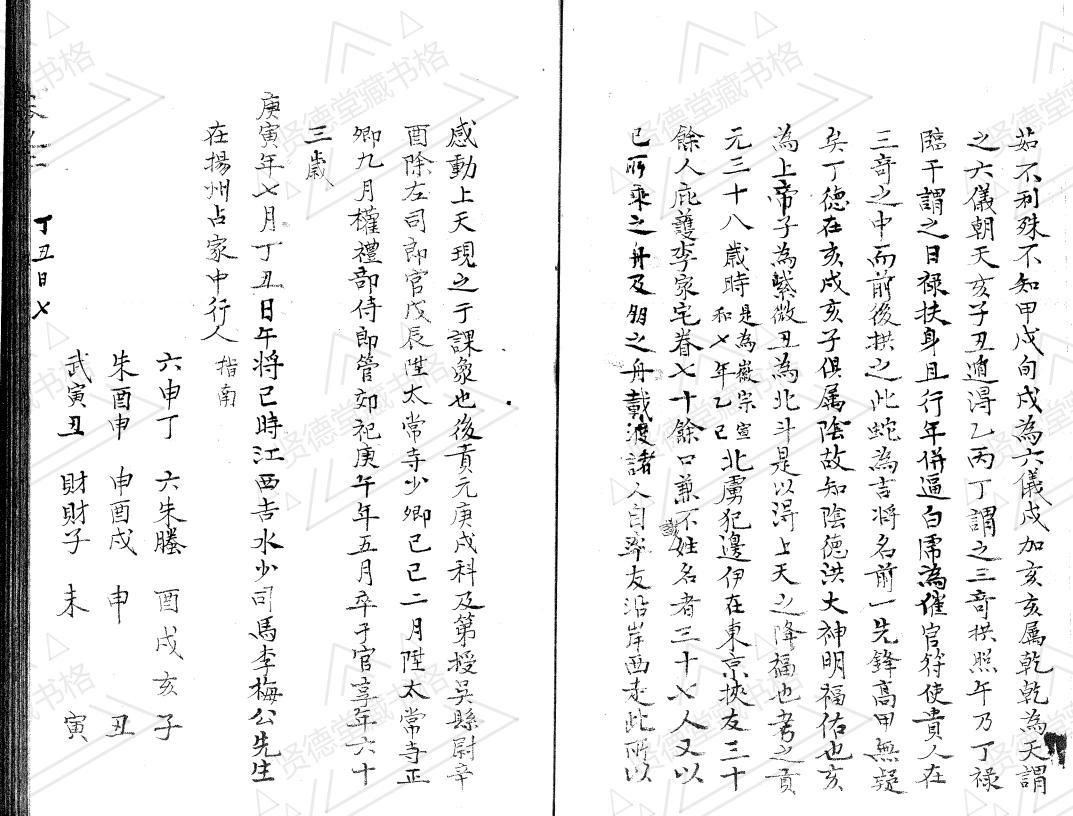 茹不利殊不知甲戌旬戌為六儀戌加亥亥屬乾乾為天謂
之六儀朝天亥子丑遁得乙丙丁謂之三奇拱照午乃丁祿
臨干謂之日祿扶身且行年併逼白虎為催官符使貴人在
三奇之中而前後拱之此蛇為吉將名前一先鋒高甲無疑
矣丁德在亥戌亥子俱屬陰故知陰德洪大神明福佑也亥
為上帝子為紫微丑為北斗是以得上天之降福也考之貢
元三十八歲時是為徽宗宣和七年乙巳北虜犯邊伊在東京挾友三十
餘人庇護李家宅眷七十餘口兼不識姓名者三十七人又以
已所乘之舟及朋之舟戴渡諸人自率友沿岸西走此所以
感動上天現之于課象也後貢元庚戌科及第授吳縣尉辛
酉除左司郎官戊辰陞太常寺少卿己巳二月陞太常寺正
卿九月權禮部侍郎管郊祀庚午年五月卒于官享年六十
三歲
庚寅年七月丁丑日午將巳時江西吉水少司馬李梅公先生
在揚州占家中行人 指南
六申丁 六朱螣 酉戌亥子
朱酉申 申酉戌 申 丑
武寅丑 財財子 未 寅
丁丑日